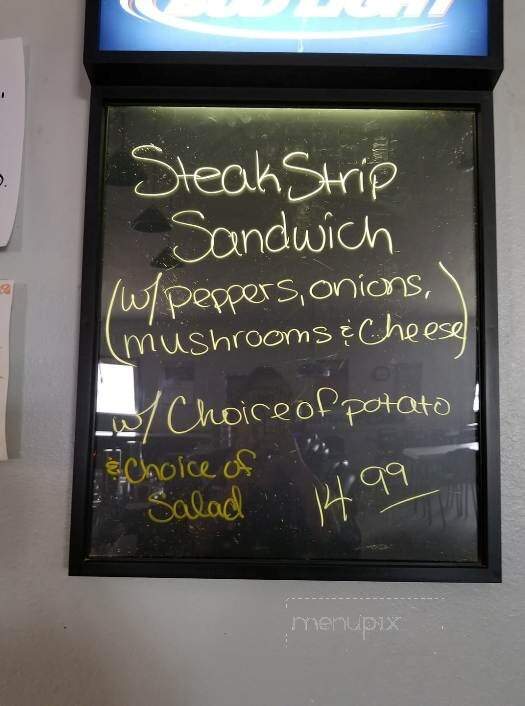 BUD LIGHT
Steak Strip
Sandwich
(w/ peppers, onions,
mushrooms & Cheese)
w/ Choice of potato
& Choice of
Salad
14 99
menupix